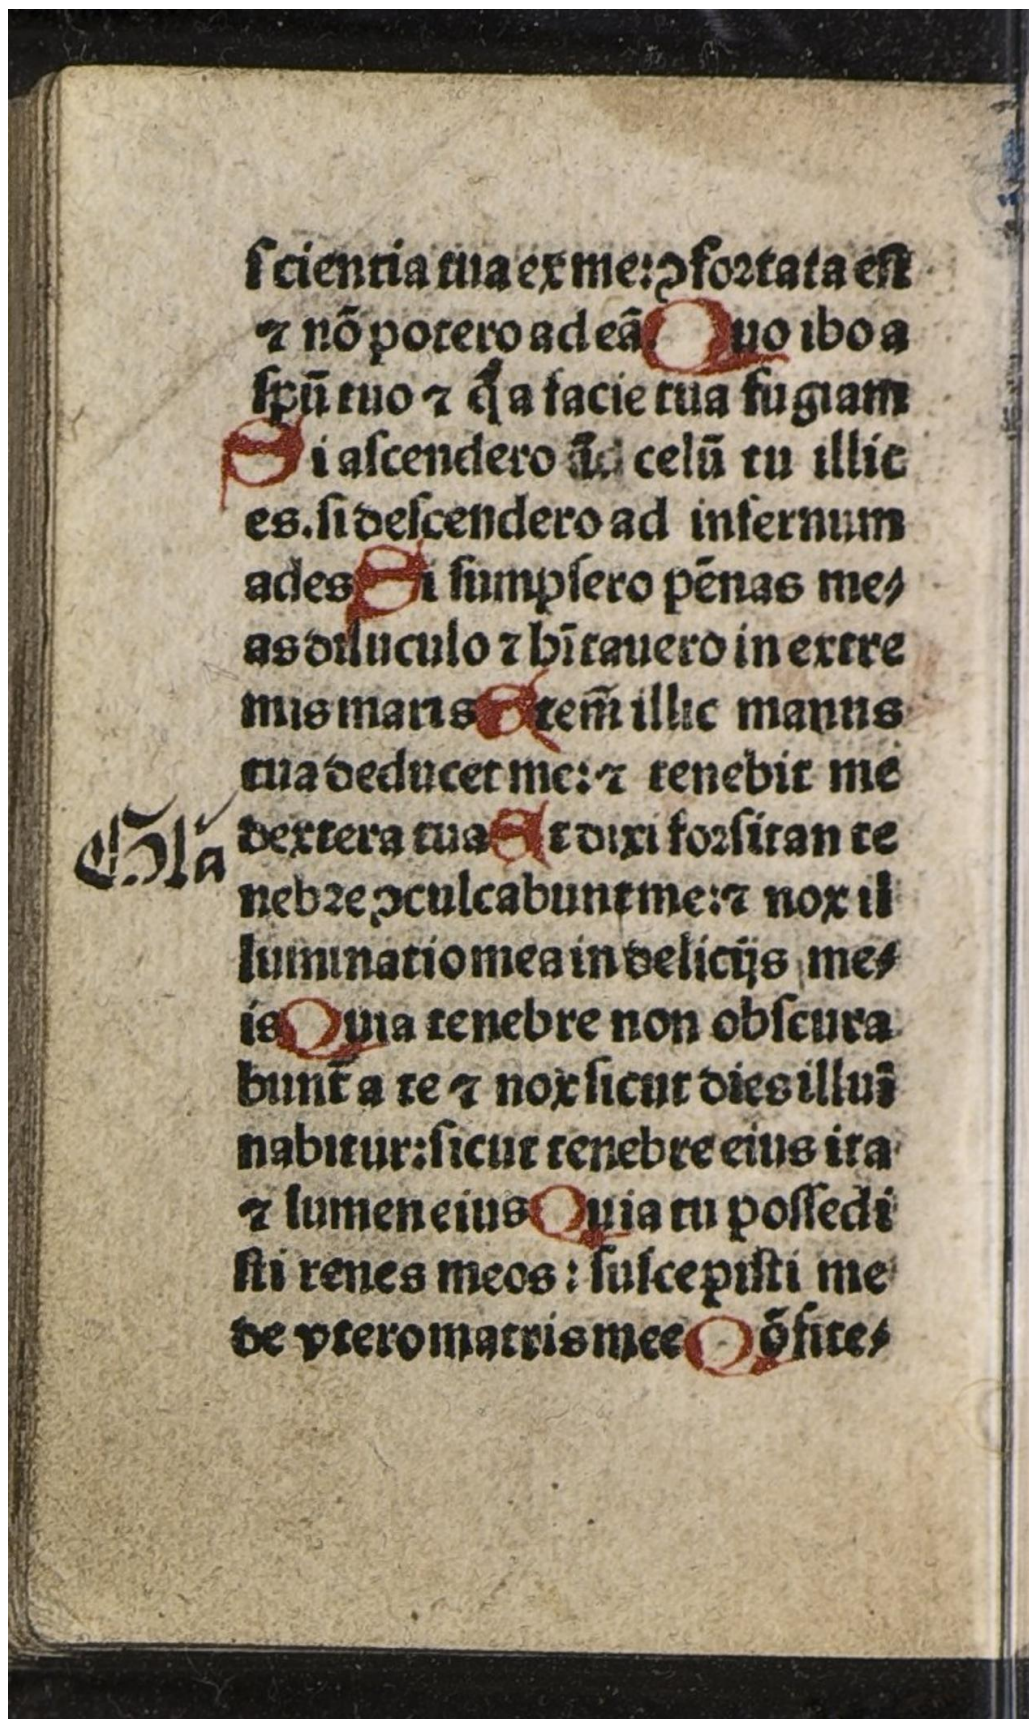 scientia tua ex me:ꝯfortata est
⁊ nō potero ad eā. Quo ibo a
spū tuo ⁊ q̄ a facie tua fugiam
Si ascendero ad celū tu illic
es. si descendero ad infernum
ades Si sumpsero pēnas me⸗
as diluculo ⁊ hītauero in extre
mis maris Etem̄ illic manus
tua deducet me: ⁊ tenebit me
Gl'a
dextera tua Et dixi forsitan te
nebre ꝯculcabunt me: ⁊ nox il
luminatio mea in delicijs me⸗
is Quia tenebre non obscura
bunt̄ a te ⁊ nox sicut dies illuī
nabitur: sicut tenebre eius ita
⁊ lumen eius Quia tu possedi
sti renes meos: suscepisti me
de vtero matris mee Qōfite⸗